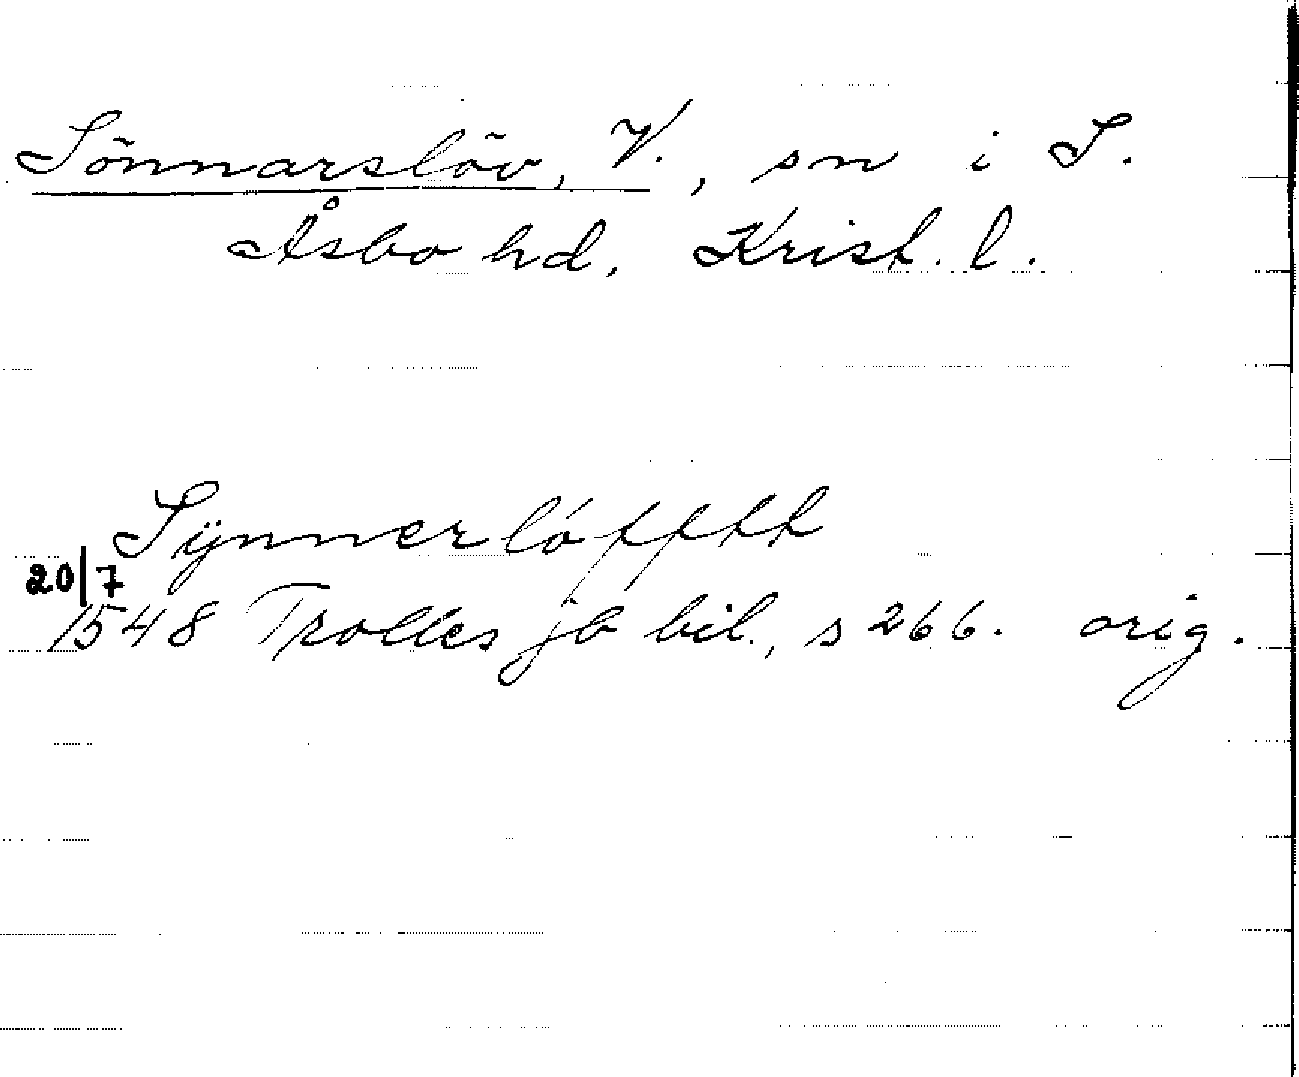 Sönnarslöv, V., sn i S.
Åsbo hd, Krist. l.
Sÿnnerlóffttt
20/7
1548 Trolles jb bil., s 266. orig.